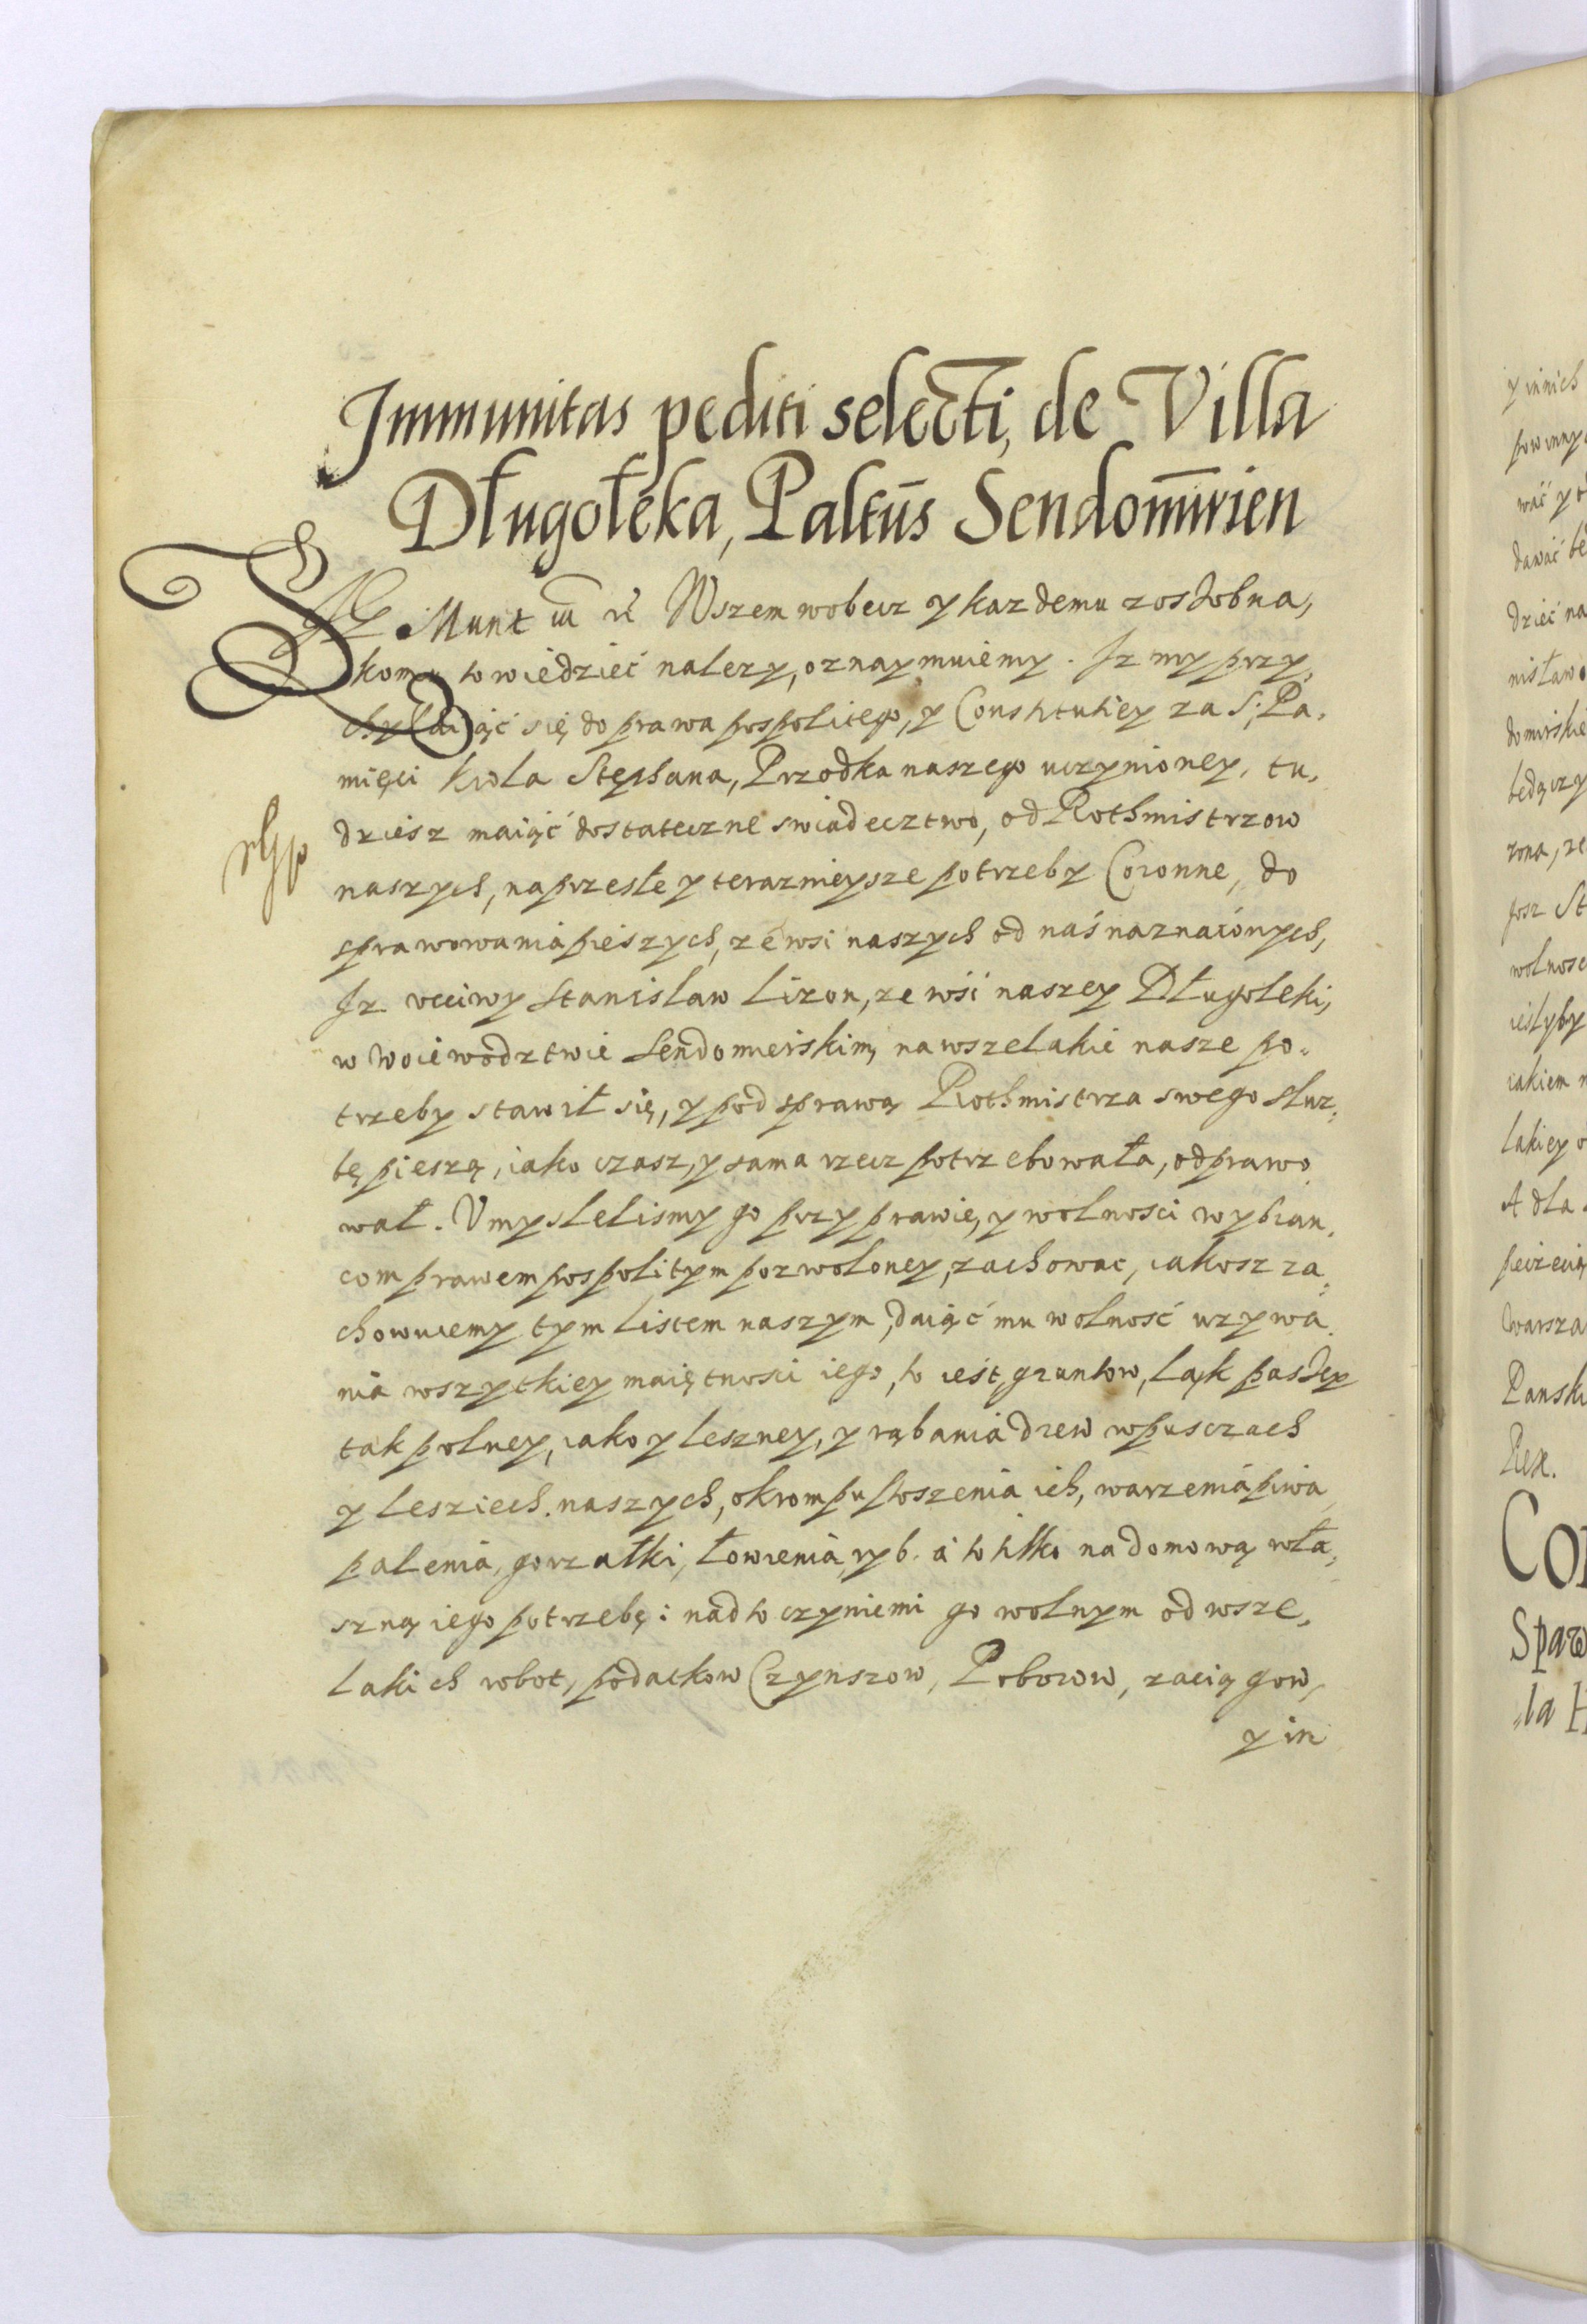 Immunitas pediti selecti, de Villa
Długołęka, Paltūs Sendomirien
Munt Wszem wobecz y kazdemu zosobna,
komu to wiedzieć nalezy, oznaymuiemy. Iz my przy,
chylaiąć się do prawa pospolitego, y Constitutiey za S: Pa,
mięci krola Stephana, Przodka naszego uczynioney, tu,
dziesz maiąć dostateczne swiadecztwo, od Rothmistrzow
naszych, na przeszłe y teraznieysze potrzeby Coronne, do
sprawowania pieszych, ze wsi naszych od naś naznaczonych,
Iz uczciwy Stanislaw Lizon, ze wśi naszey Długoleki,
w Woiewodztwie Sendomierskim, na wszelakie nasze po,
trzeby stawił się, y pod sprawą Rothmistrza swego słuz,
bę pieszą, iako czasz, y sama rzecz potrzebowała, odprawo,
wał. Umyslelismy go przy prawie, y wolnosci wybran,
com prawem pospolitym pozwoloney, zachowac, iakosz za,
chowuiemy tym listem naszym, daiąć mu wolność uzywa,
nia wszytkiey maiętnosci iego, to iest, gruntow, Ląk paszy
tak polney, iako y leszney, y rąbania drew w pusczach
y lesziech naszych, okrom pustoszenia ich, warzenia piwa
palenia, gorzałki, łowienia, ryb. a to tilko na domową wła,
szną iego potrzebę: nad to czyniemi go wolnym od wsze,
lakich robot, podatkow Czynszow, Poborow, zaciągow,
y in
y innich
powinny
wać y t
dawać
dzieć na
nisław
domirskie
będączy
zona, ze
St
wolnosc
iesłyby
iakiem
lakiey
A dla
pieczecią
Warsza
Pansk
Rex.
Con
Spaw
la H